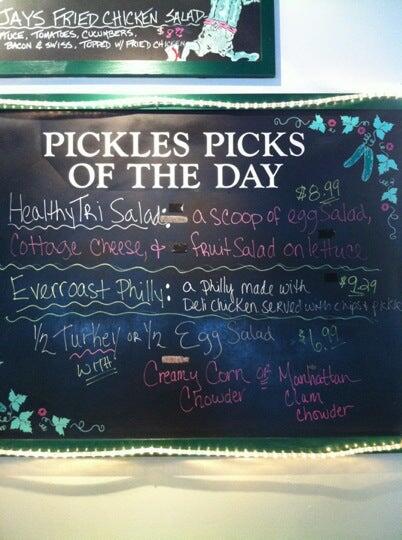 JAYS FRIED CHICKEN SALAD
TUCE, TOMATOES, CUCUMBERS,
BACON & SWISS, TOPPED W/ FRIED CHICKEN
PICKLES PICKS
OF THE DAY
$8.99
Healthy Tri Salad: a scoop of egg Salad,
Cottage Cheese, & fruit Salad on lettuce
Everroast Philly: a philly made with $9.29
Deli chicken served with chips & pickle
1/2 Turkey or 1/2 Egg Salad $6.99
with:
Creamy Corn or Manhattan
Chowder Clam
chowder